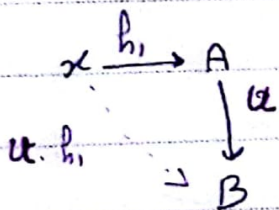 x h₁ A
u
u. h₁
B